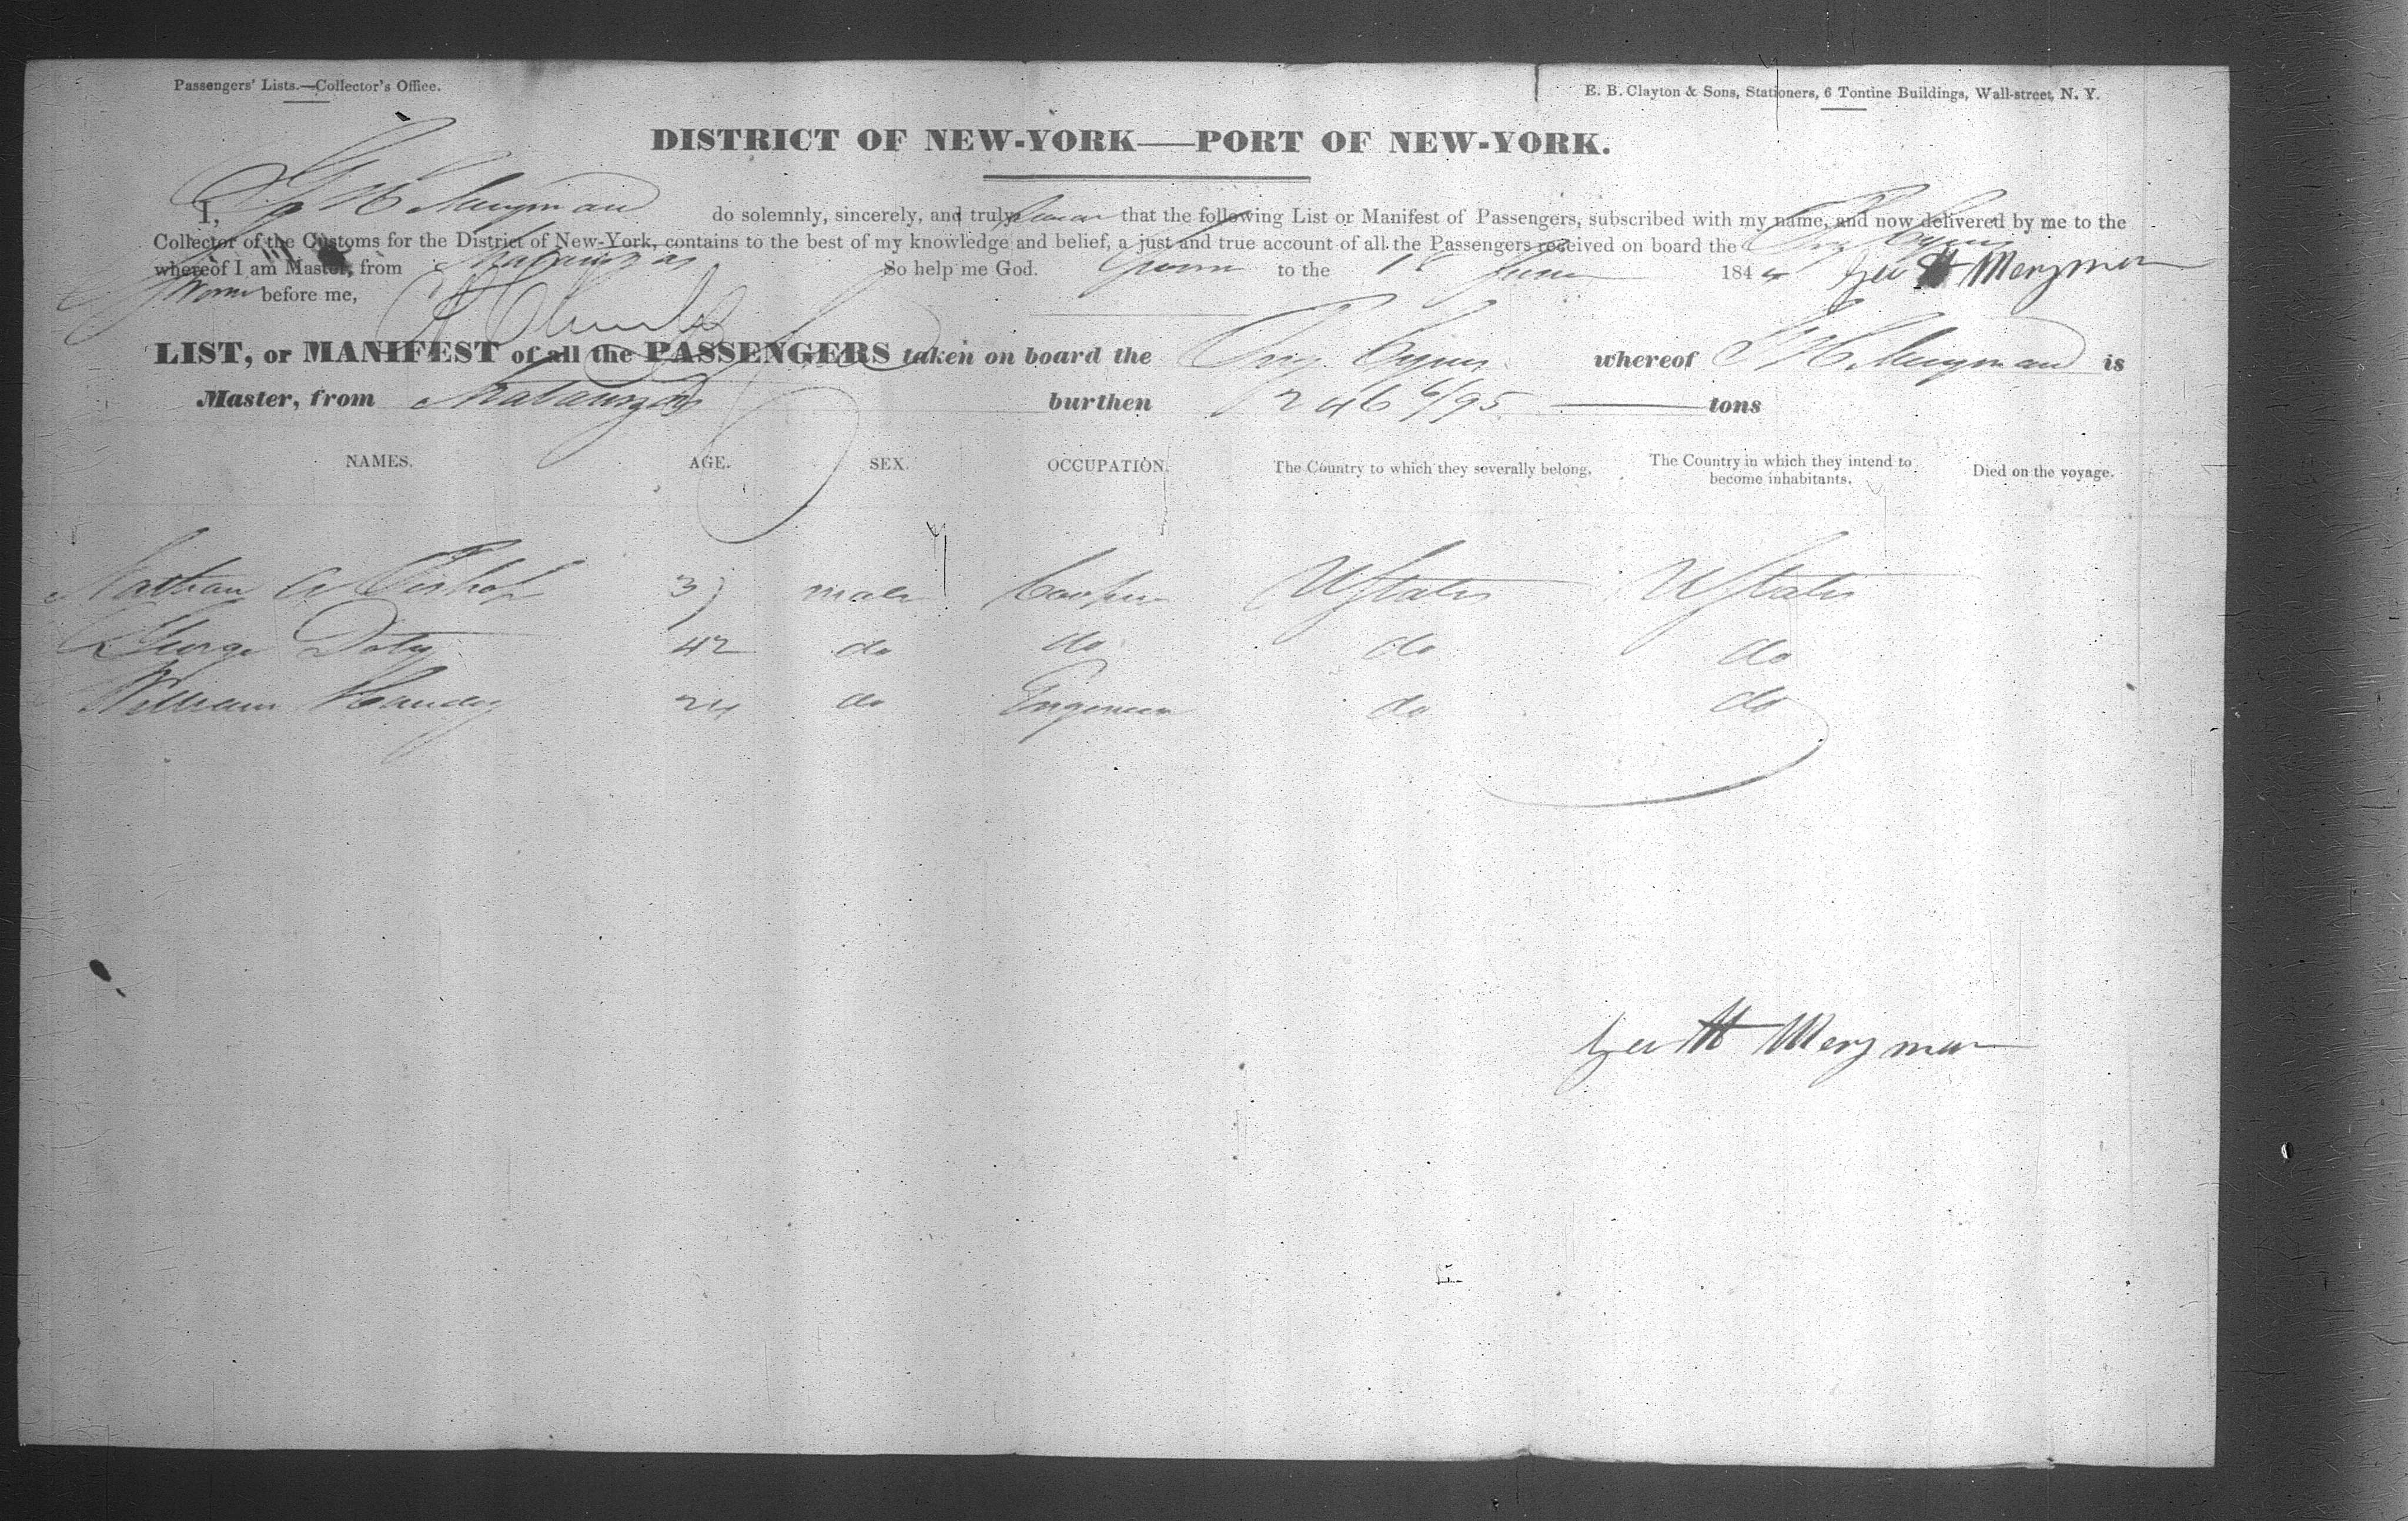 Passengers' Lists.—Collector's Office.
E. B. Clayton & Sons, Stationers, 6 Tontine Buildings, Wall-street, N. Y.
DISTRICT OF NEW-YORK—PORT OF NEW-YORK.
I, G H Merryman do solemnly, sincerely, and truly swear that the following List or Manifest of Passengers, subscribed with my name, and now delivered by me to the
Collector of the Customs for the District of New-York, contains to the best of my knowledge and belief, a just and true account of all the Passengers received on board the Brig Cyrus
whereof I am Master, from Matanzas So help me God.
Sworn to the 1st June 1844 Geo H Merryman
Sworn before me,
LIST, or MANIFEST of all the PASSENGERS taken on board the Brig Cyrus whereof G H Merryman is
Master, from Matanzas burthen 246 6/95 tons
NAMES. AGE. SEX. OCCUPATION. The Country to which they severally belong. The Country in which they intend to become inhabitants. Died on the voyage.
Nathan Bishop 37 male Cooper U States U States
George Doty 42 do do do do
William Handy 24 do Engineer do do
Geo H Merryman